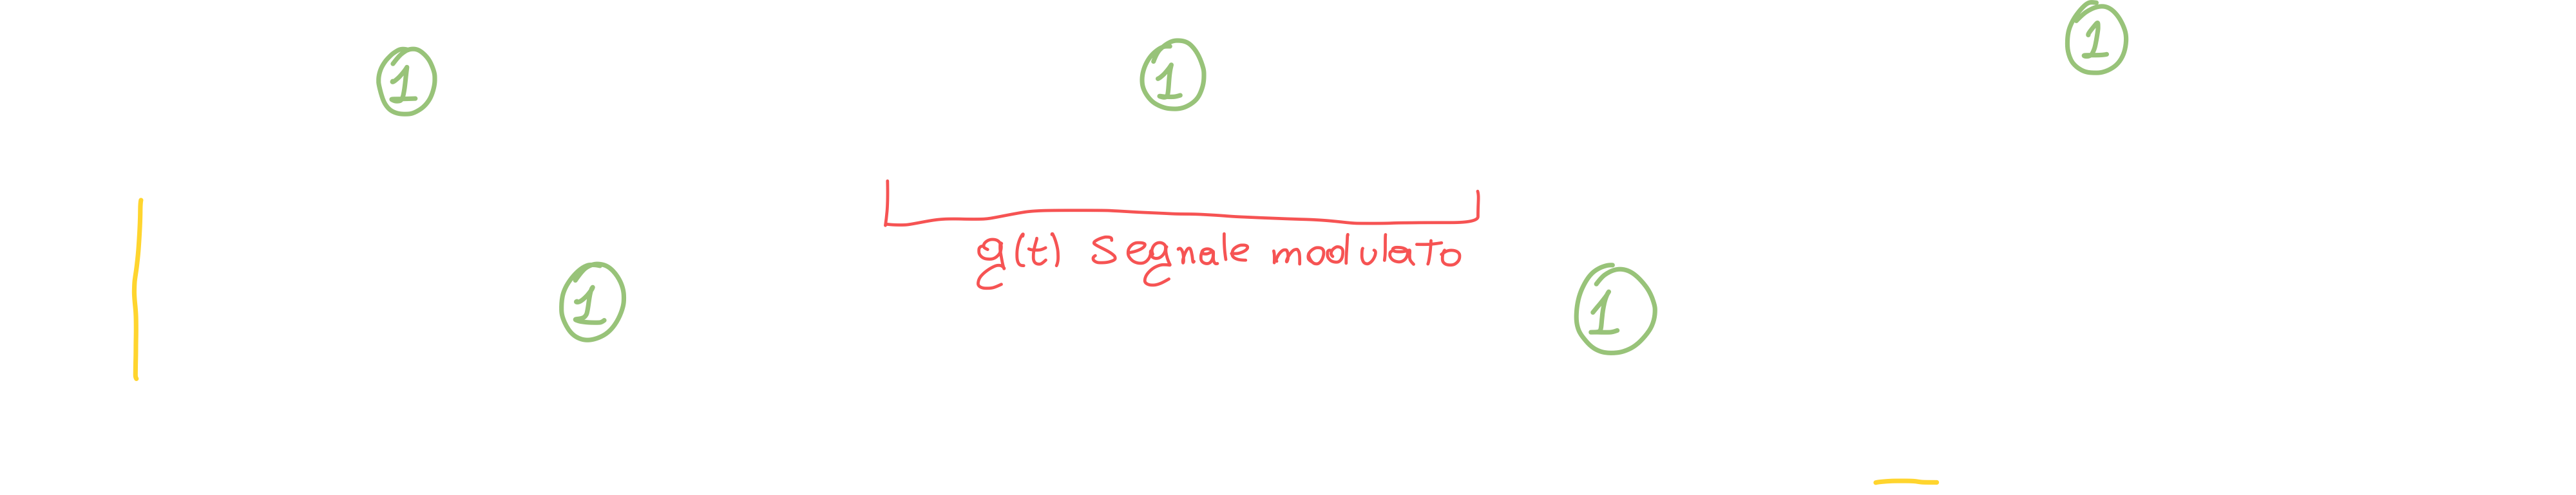 1 1 1
g(t) Segnale modulato
1 1